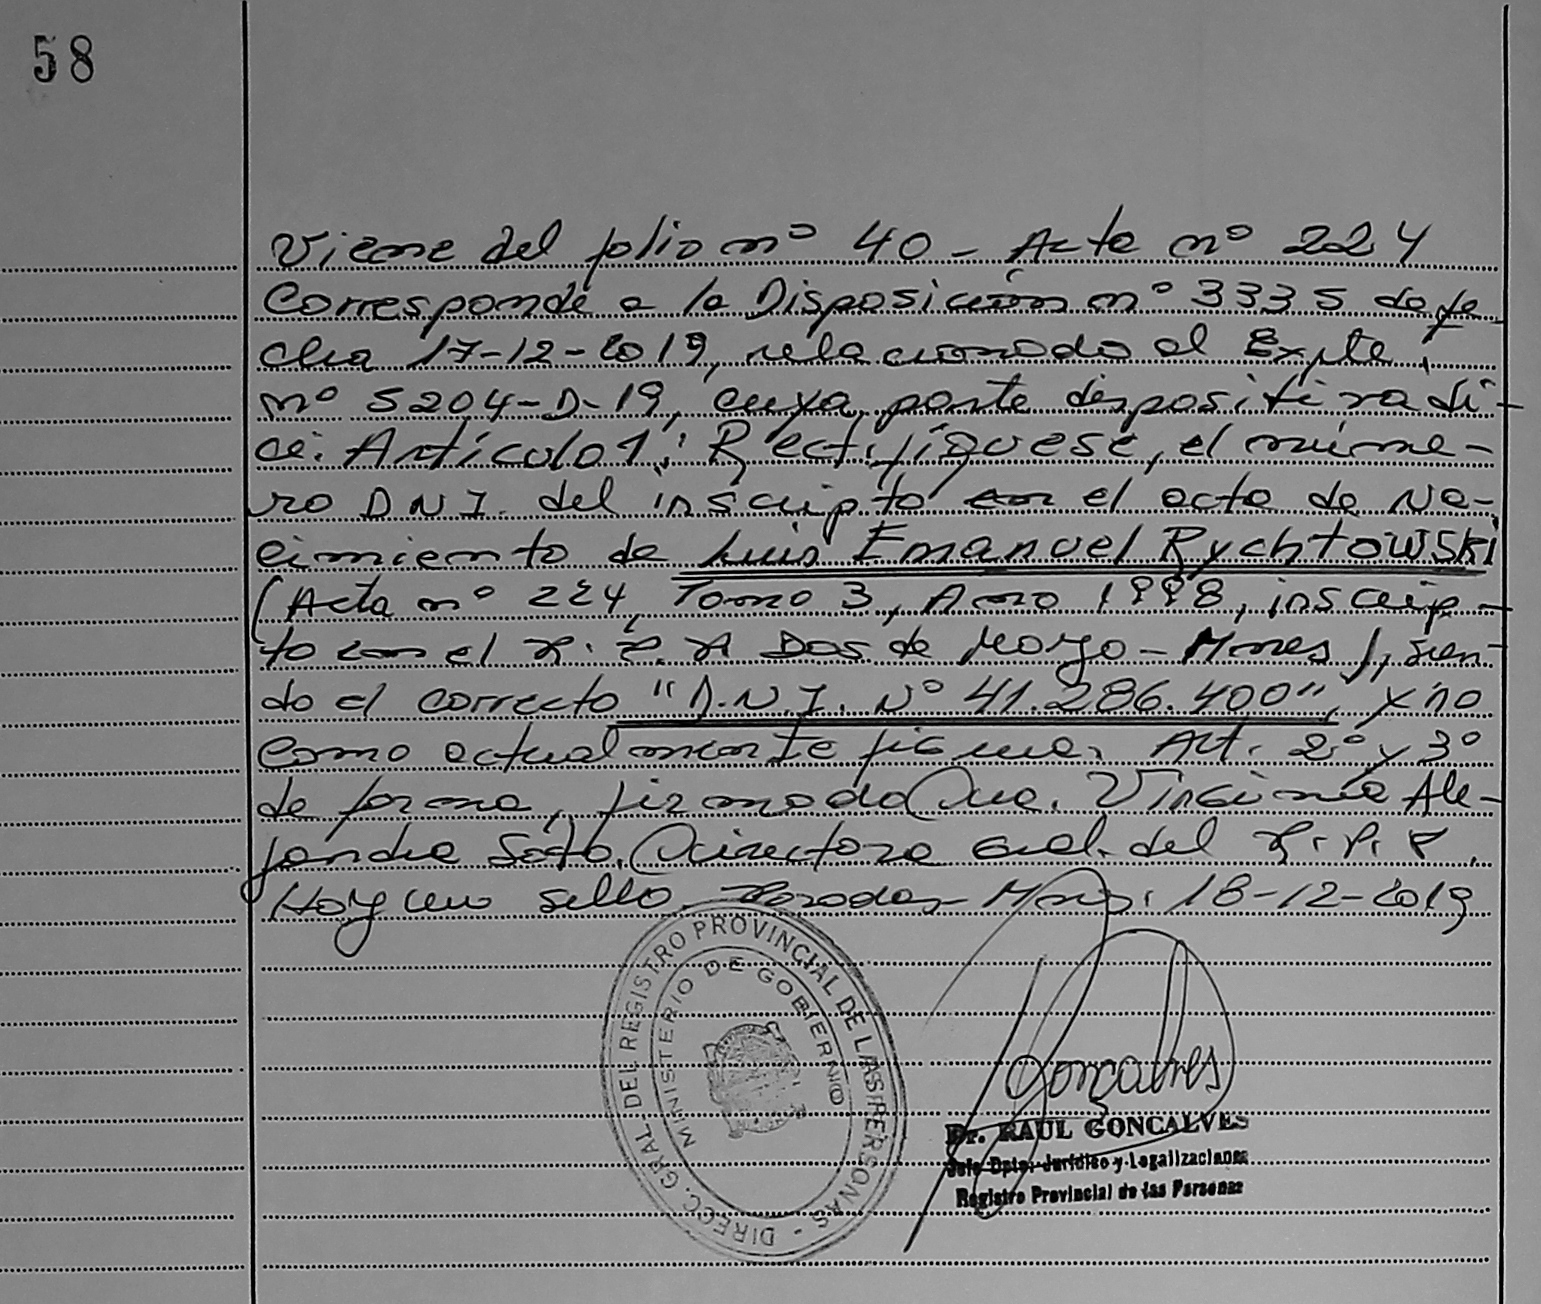 58
Viene del folio nº 40 - Acta nº 224
Corresponde a la Disposición nº 3335 de fe
cha 17-12-2019, relacionado al Expte.
nº 5204-D-19, cuya parte dispositiva di-
ce: Artículo 1: Rectifíquese, el núme-
ro D.N.I. del inscripto en el acta de Na-
cimiento de Luis Emanuel Rychtowski
(Acta nº 224, Tomo 3, Año 1998, inscrip-
to en el R. P. Dos de Mayo - Mnes), sien-
do el correcto "D.N.I. Nº 41.286.400", y no
como actualmente figura. Art. 2º y 3º
de forma, firmado Dra. Virginia Ale-
jandra Soto. Directora Gral. del R.P.P.
Hay un sello. Posadas - Mnes. 18-12-2019
DIRECC. GRAL DEL REGISTRO PROVINCIAL DE LAS PERSONAS -
MINISTERIO DE GOBIERNO
Gonçalves
Dr. RAUL GONCALVES
Jefe Dpto. Jurídico y Legalizaciones
Registro Provincial de las Personas